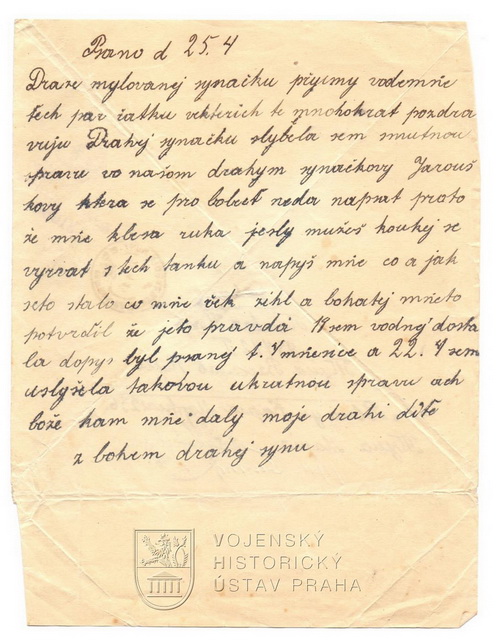 Psano d 25. 4
Draze mylovanej synačku přijmy vodemňe
tech par řatku vekterich te mnohokrat pozdra
vuju Drahej synačku slyšela sem smutnou
spravu vo našom drahym synačkovy Jarouš
kovy ktera se pro bolest neda napsat proto
že mňe klesa ruka jesly mužeš koukej se
vyrvat s tech tanku a napyš mňe co a jak
seto stalo co mňe řek zihl a bohatej mňeto
potvrdil že jeto pravda 19 sem vodnój dosta
la dopys byl psanej 1. V mňesice a 22. 4 sem
uslyšela takovou ukratnou spravu ach
bože kam mňe daly moje drahi ditě
z bohem drahej synu
VOJENSKÝ
HISTORICKÝ
ÚSTAV PRAHA